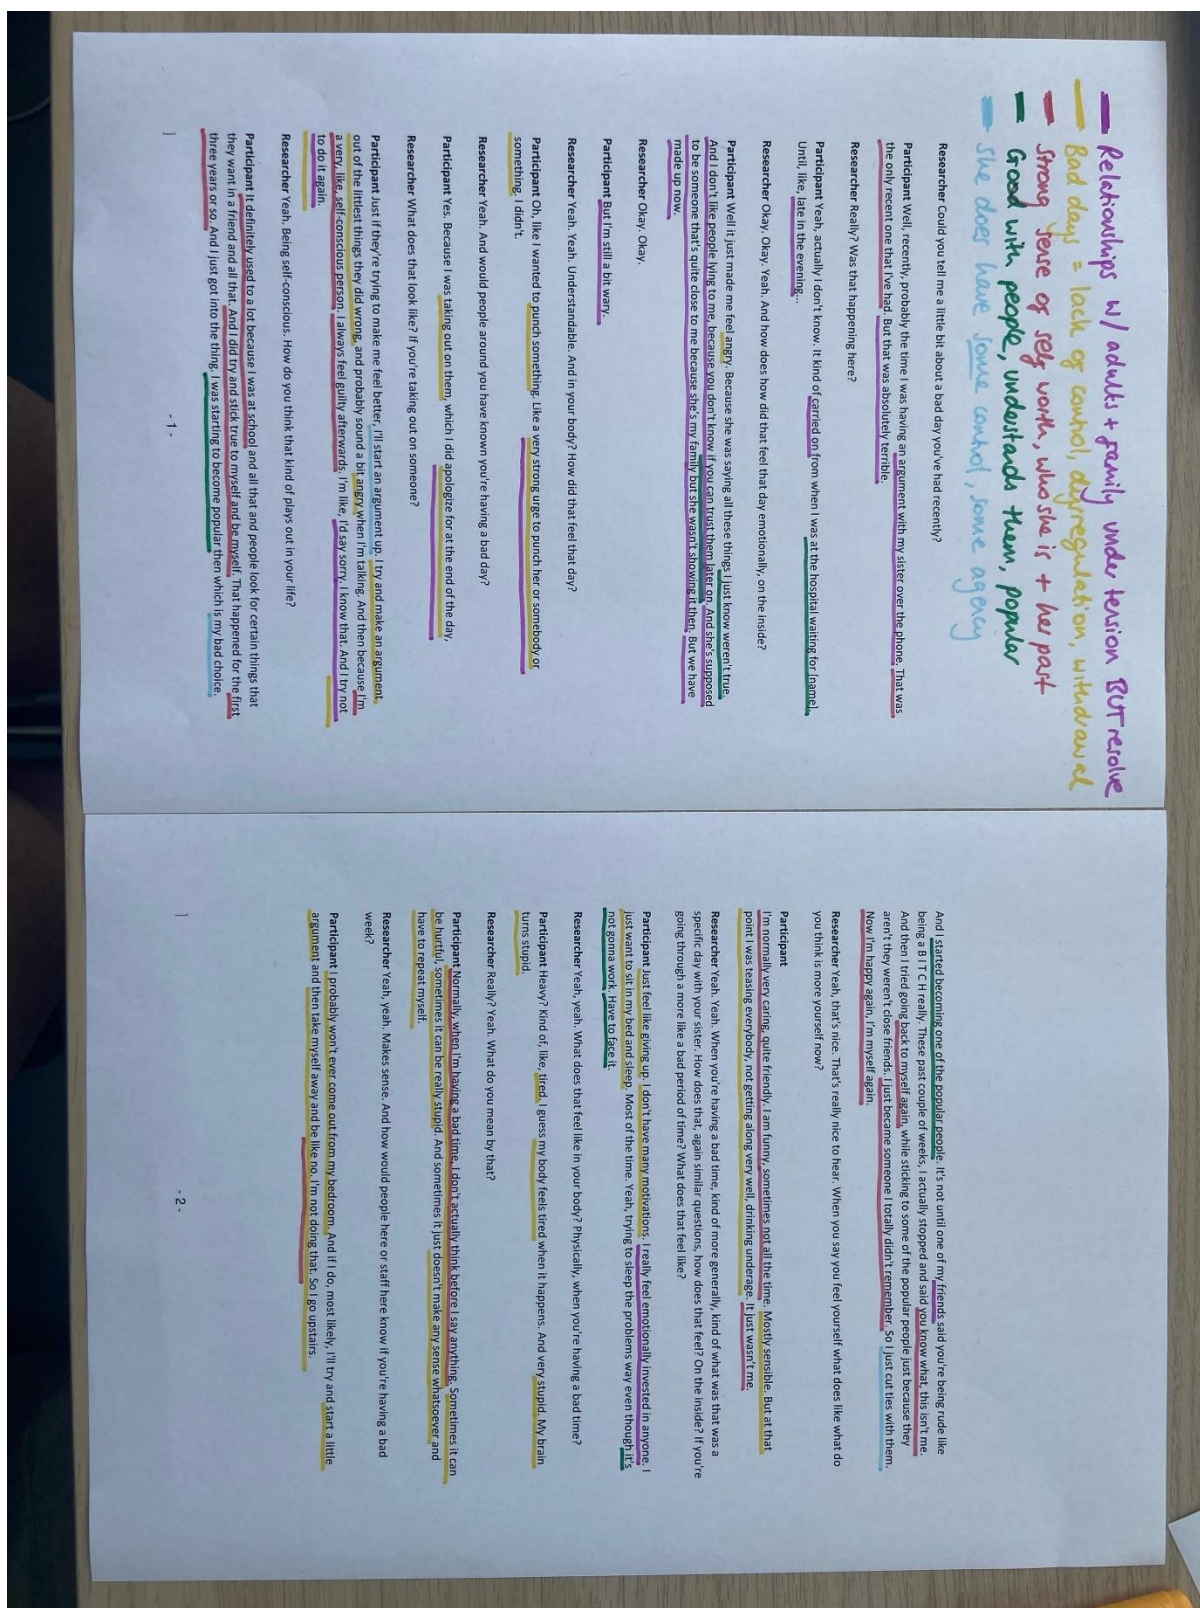 Relationships w/ adults + family under tension BUT resolve
Bad days = lack of control, dysregulation, withdrawal
Strong sense of self worth, who she is + her past
Good with people, understands them, popular
She does have some control, some agency
Researcher Could you tell me a little bit about a bad day you've had recently?
Participant Well, recently, probably the time I was having an argument with my sister over the phone. That was
the only recent one that I've had. But that was absolutely terrible.
Researcher Really? Was that happening here?
Participant Yeah, actually I don't know. It kind of carried on from when I was at the hospital waiting for [name].
Until, like, late in the evening...
Researcher Okay. Okay. Yeah. And how does how did that feel that day emotionally, on the inside?
Participant Well it just made me feel angry. Because she was saying all these things I just know weren't true.
And I don't like people lying to me, because you don't know if you can trust them later on. And she's supposed
to be someone that's quite close to me because she's my family but she wasn't showing it then. But we have
made up now.
Researcher Okay. Okay.
Participant But I'm still a bit wary.
Researcher Yeah. Yeah. Understandable. And in your body? How did that feel that day?
Participant Oh, like I wanted to punch something. Like a very strong urge to punch her or somebody or
something. I didn't.
Researcher Yeah. And would people around you have known you're having a bad day?
Participant Yes. Because I was taking out on them, which I did apologize for at the end of the day,
Researcher What does that look like? If you're taking out on someone?
Participant Just if they're trying to make me feel better, I'll start an argument up. I try and make an argument
out of the littlest things they did wrong, and probably sound a bit angry when I'm talking. And then because I'm
a very, like, self-conscious person. I always feel guilty afterwards. I'm like, I'd say sorry. I know that. And I try not
to do it again.
Researcher Yeah. Being self-conscious. How do you think that kind of plays out in your life?
Participant It definitely used to a lot because I was at school and all that and people look for certain things that
they want in a friend and all that. And I did try and stick true to myself and be myself. That happened for the first
three years or so. And I just got into the thing. I was starting to become popular then which is my bad choice.
- 1 -
And I started becoming one of the popular people. It's not until one of my friends said you're being rude like
being a B I T C H really. These past couple of weeks, I actually stopped and said you know what, this isn't me.
And then I tried going back to myself again, while sticking to some of the popular people just because they
aren't they weren't close friends. I just became someone I totally didn't remember. So I just cut ties with them.
Now I'm happy again, I'm myself again.
Researcher Yeah, that's nice. That's really nice to hear. When you say you feel yourself what does like what do
you think is more yourself now?
Participant
I'm normally very caring, quite friendly. I am funny, sometimes not all the time. Mostly sensible. But at that
point I was teasing everybody, not getting along very well, drinking underage. It just wasn't me.
Researcher Yeah. Yeah. When you're having a bad time, kind of more generally, kind of what was that was a
specific day with your sister. How does that, again similar questions, how does that feel? On the inside? If you're
going through a more like a bad period of time? What does that feel like?
Participant Just feel like giving up. I don't have many motivations. I really feel emotionally invested in anyone. I
just want to sit in my bed and sleep. Most of the time. Yeah, trying to sleep the problems way even though it's
not gonna work. Have to face it.
Researcher Yeah, yeah. What does that feel like in your body? Physically, when you're having a bad time?
Participant Heavy? Kind of, like, tired. I guess my body feels tired when it happens. And very stupid. My brain
turns stupid.
Researcher Really? Yeah. What do you mean by that?
Participant Normally, when I'm having a bad time, I don't actually think before I say anything. Sometimes it can
be hurtful, sometimes it can be really stupid. And sometimes it just doesn't make any sense whatsoever and
have to repeat myself.
Researcher Yeah, yeah. Makes sense. And how would people here or staff here know if you're having a bad
week?
Participant I probably won't ever come out from my bedroom. And if I do, most likely, I'll try and start a little
argument and then take myself away and be like no. I'm not doing that. So I go upstairs.
- 2 -